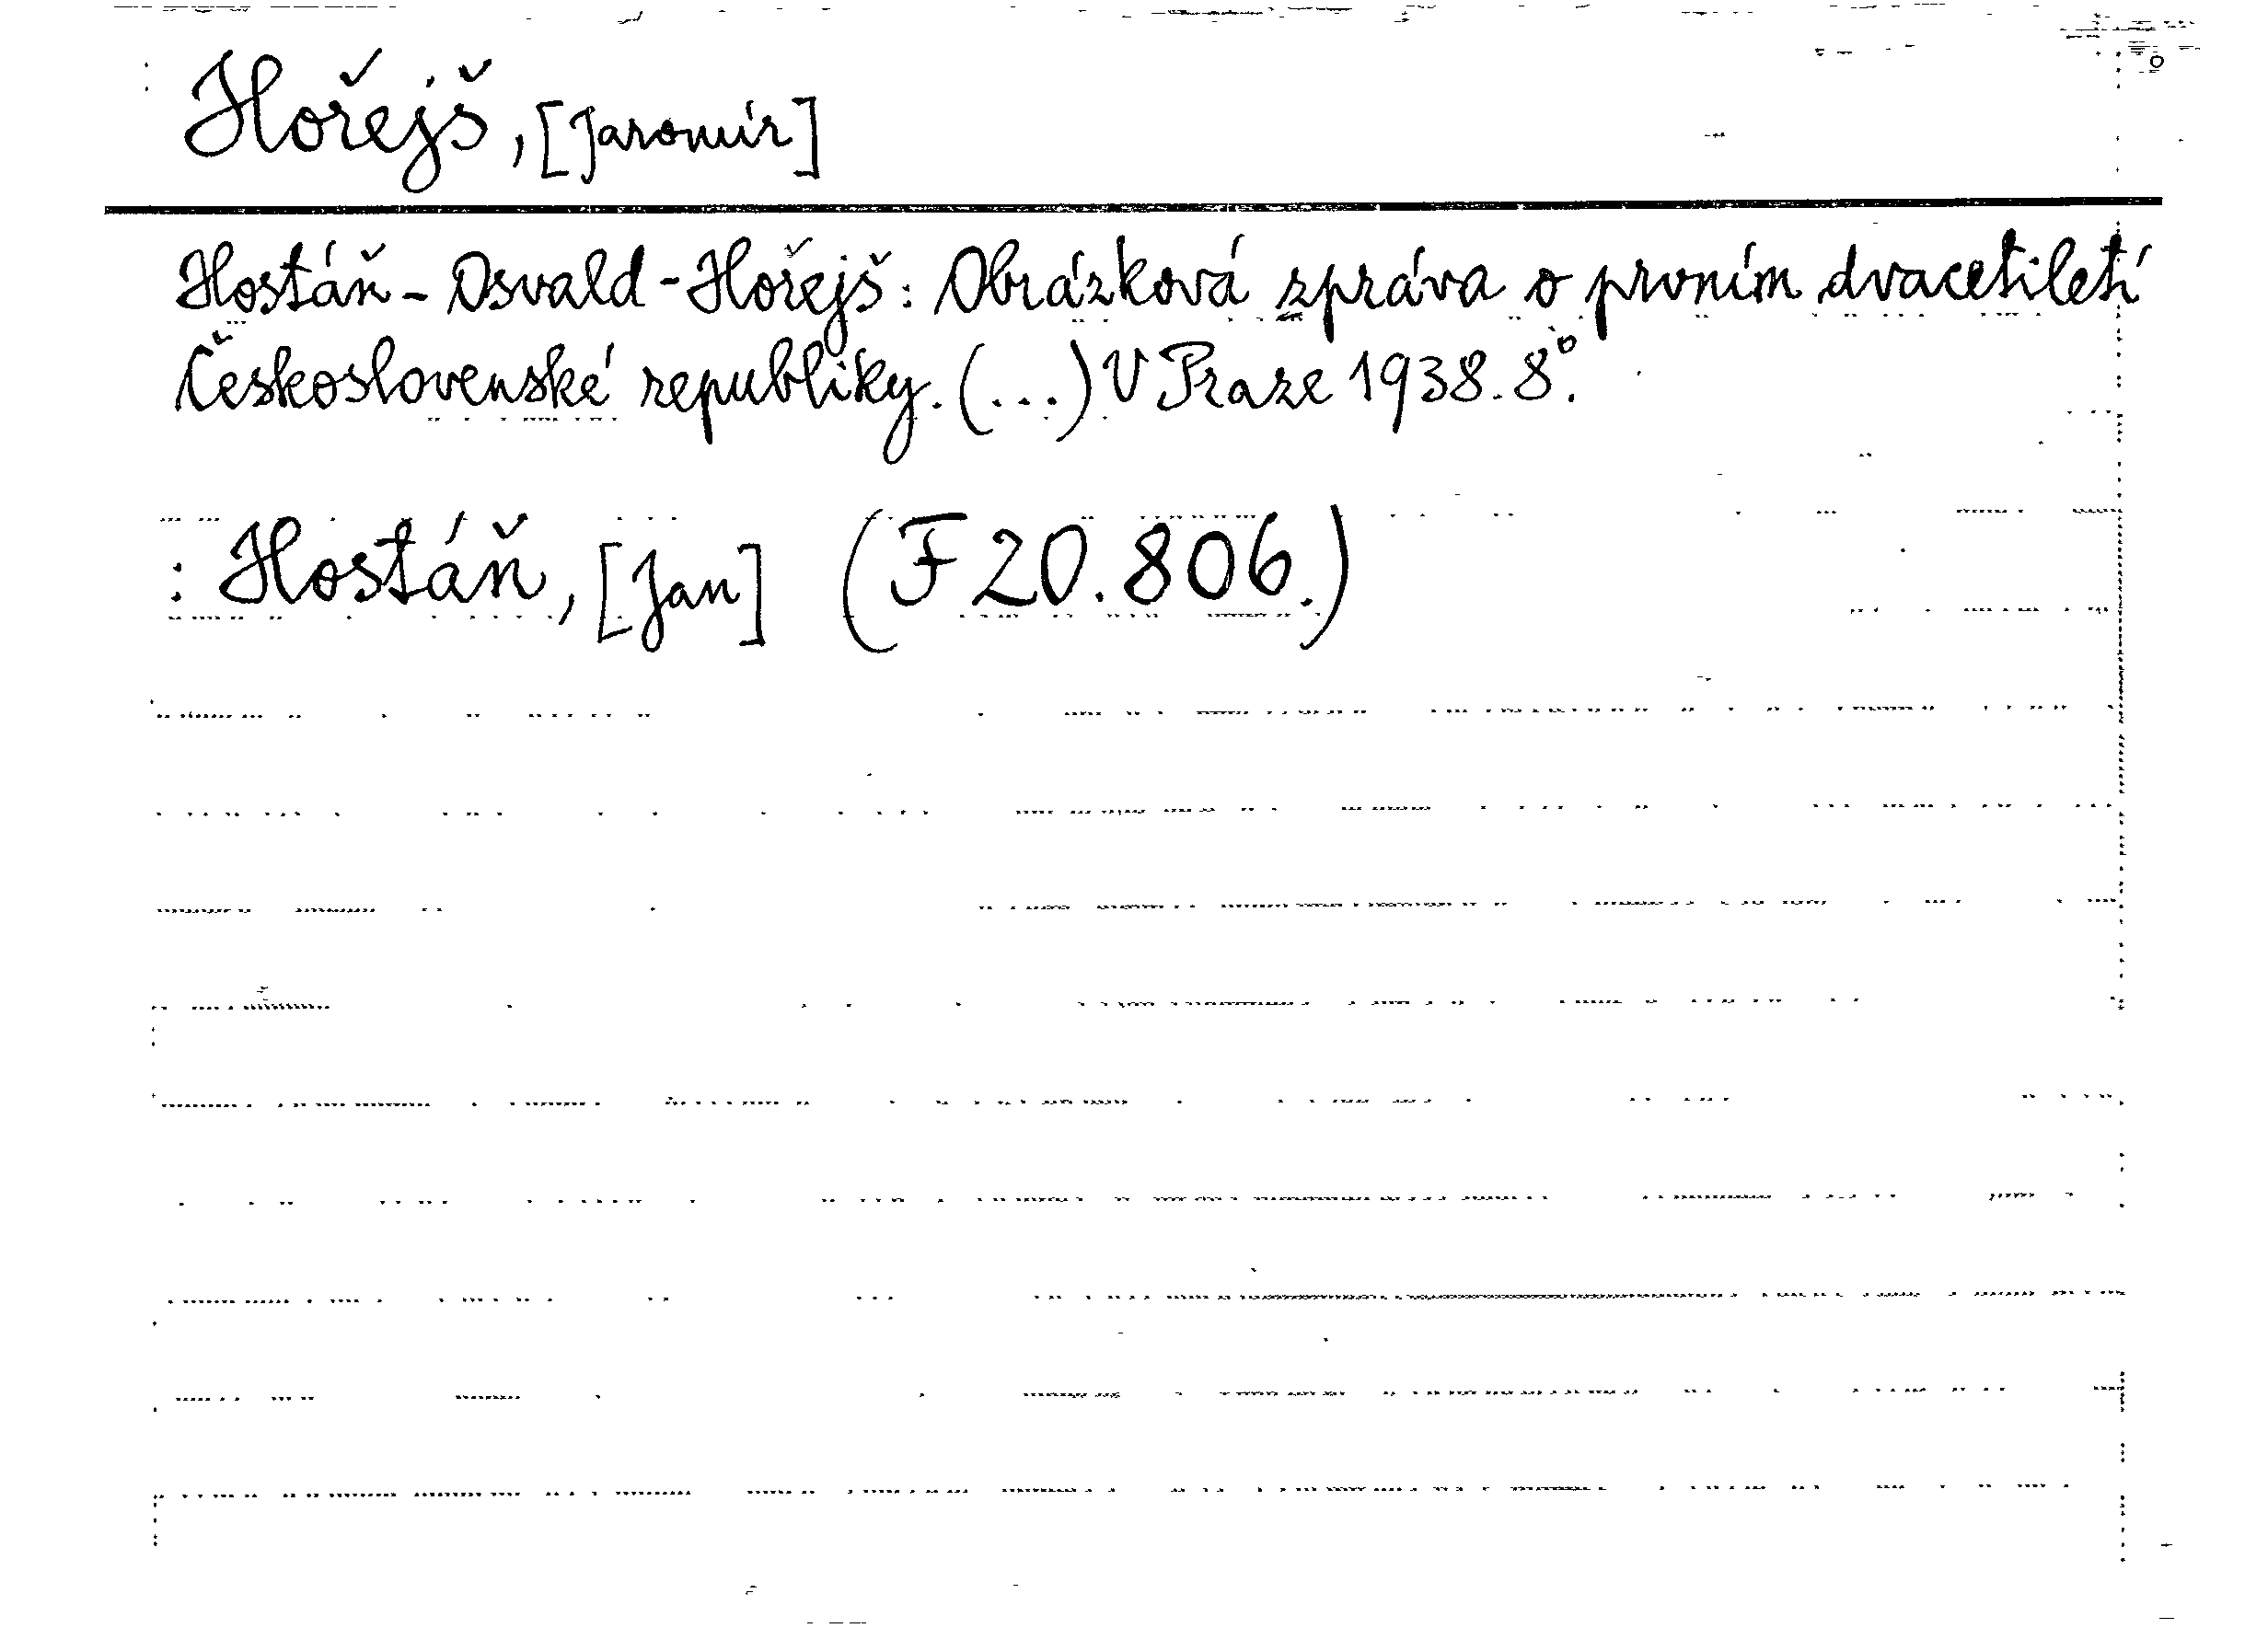 Hořejš, [Jaromír]
Hostáň - Osvald - Hořejš: Obrázková zpráva o prvním dvacetiletí
Československé republiky. (...) V Praze 1938. 8°.
: Hostáň, [Jan] (F 20.806.)